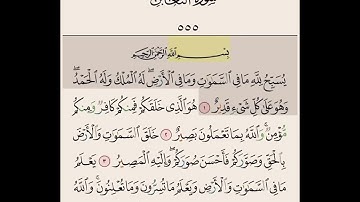 سُورَةُ التَّغَابُنِ
٥٥٥
بِسْمِ ٱللَّهِ ٱلرَّحْمَٰنِ ٱلرَّحِيمِ
يُسَبِّحُ لِلَّهِ مَا فِي ٱلسَّمَٰوَٰتِ وَمَا فِي ٱلْأَرْضِۖ لَهُ ٱلْمُلْكُ وَلَهُ ٱلْحَمْدُۖ
وَهُوَ عَلَىٰ كُلِّ شَيْءٍ قَدِيرٌ ١ هُوَ ٱلَّذِي خَلَقَكُمْ فَمِنكُمْ كَافِرٌ وَمِنكُم
مُّؤْمِنٌۚ وَٱللَّهُ بِمَا تَعْمَلُونَ بَصِيرٌ ٢ خَلَقَ ٱلسَّمَٰوَٰتِ وَٱلْأَرْضَ
بِٱلْحَقِّ وَصَوَّرَكُمْ فَأَحْسَنَ صُوَرَكُمْۖ وَإِلَيْهِ ٱلْمَصِيرُ ٣ يَعْلَمُ
مَا فِي ٱلسَّمَٰوَٰتِ وَٱلْأَرْضِ وَيَعْلَمُ مَا تُسِرُّونَ وَمَا تُعْلِنُونَۚ وَٱللَّهُ